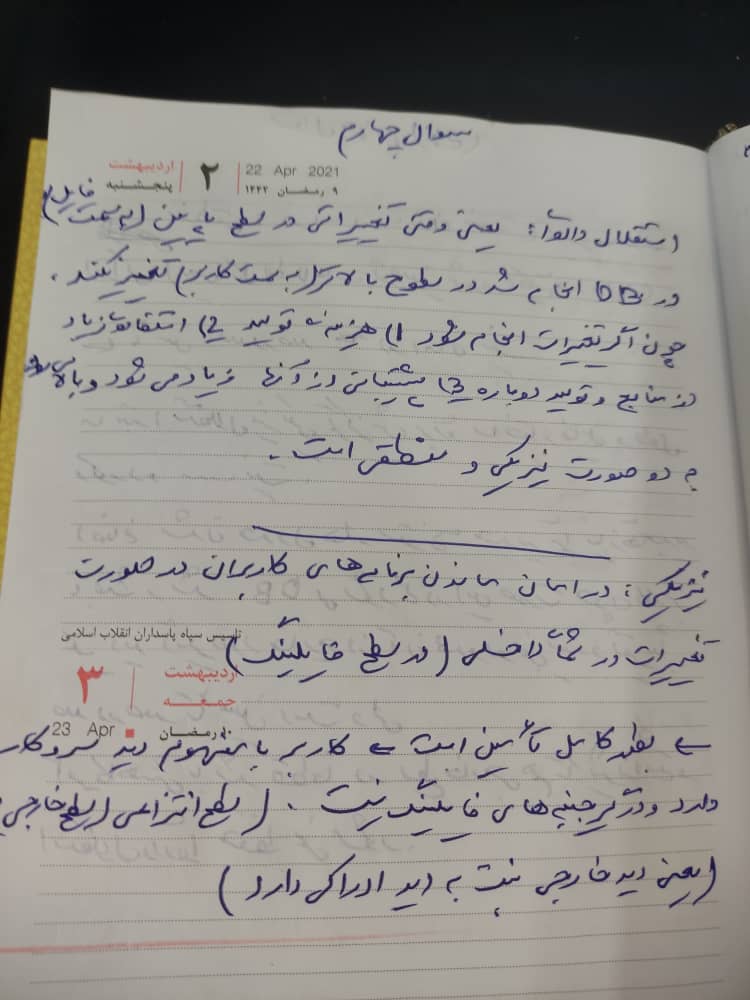 سوال چهارم
اردیبهشت ۲ 22 Apr 2021
پنجشنبه ۹ رمضان ۱۴۴۲
استقلال داده‌ای: یعنی وقتی تغییراتی در سطح پایین (به سمت فایل)
در DB انجام شد در سطوح بالاتر (به سمت کاربر) تغییر نکند.
چون اگر تغییرات انجام شود 1) هزینه تولید 2) استفاده زیاد
از منابع و تولید دوباره 3) پشتیبانی از آنها زیاد می شود و بالا می‌رود
به دو صورت فیزیکی و منطقی است.
فیزیکی: در امان ماندن برنامه‌های کاربران در صورت
تاسیس سپاه پاسداران انقلاب اسلامی
تغییرات در شمای داخلی (در سطح فایلینگ)
اردیبهشت ۳
جمعه
23 Apr ۱۰ رمضان
بطور کامل تأمین است کاربر با مفهوم دید سروکار
دارد و درگیر جنبه‌های فایلینگ نیست. (سطح انتزاعی (سطح خارجی)
(یعنی دید خارجی نسبت به دید ادراکی دارد)